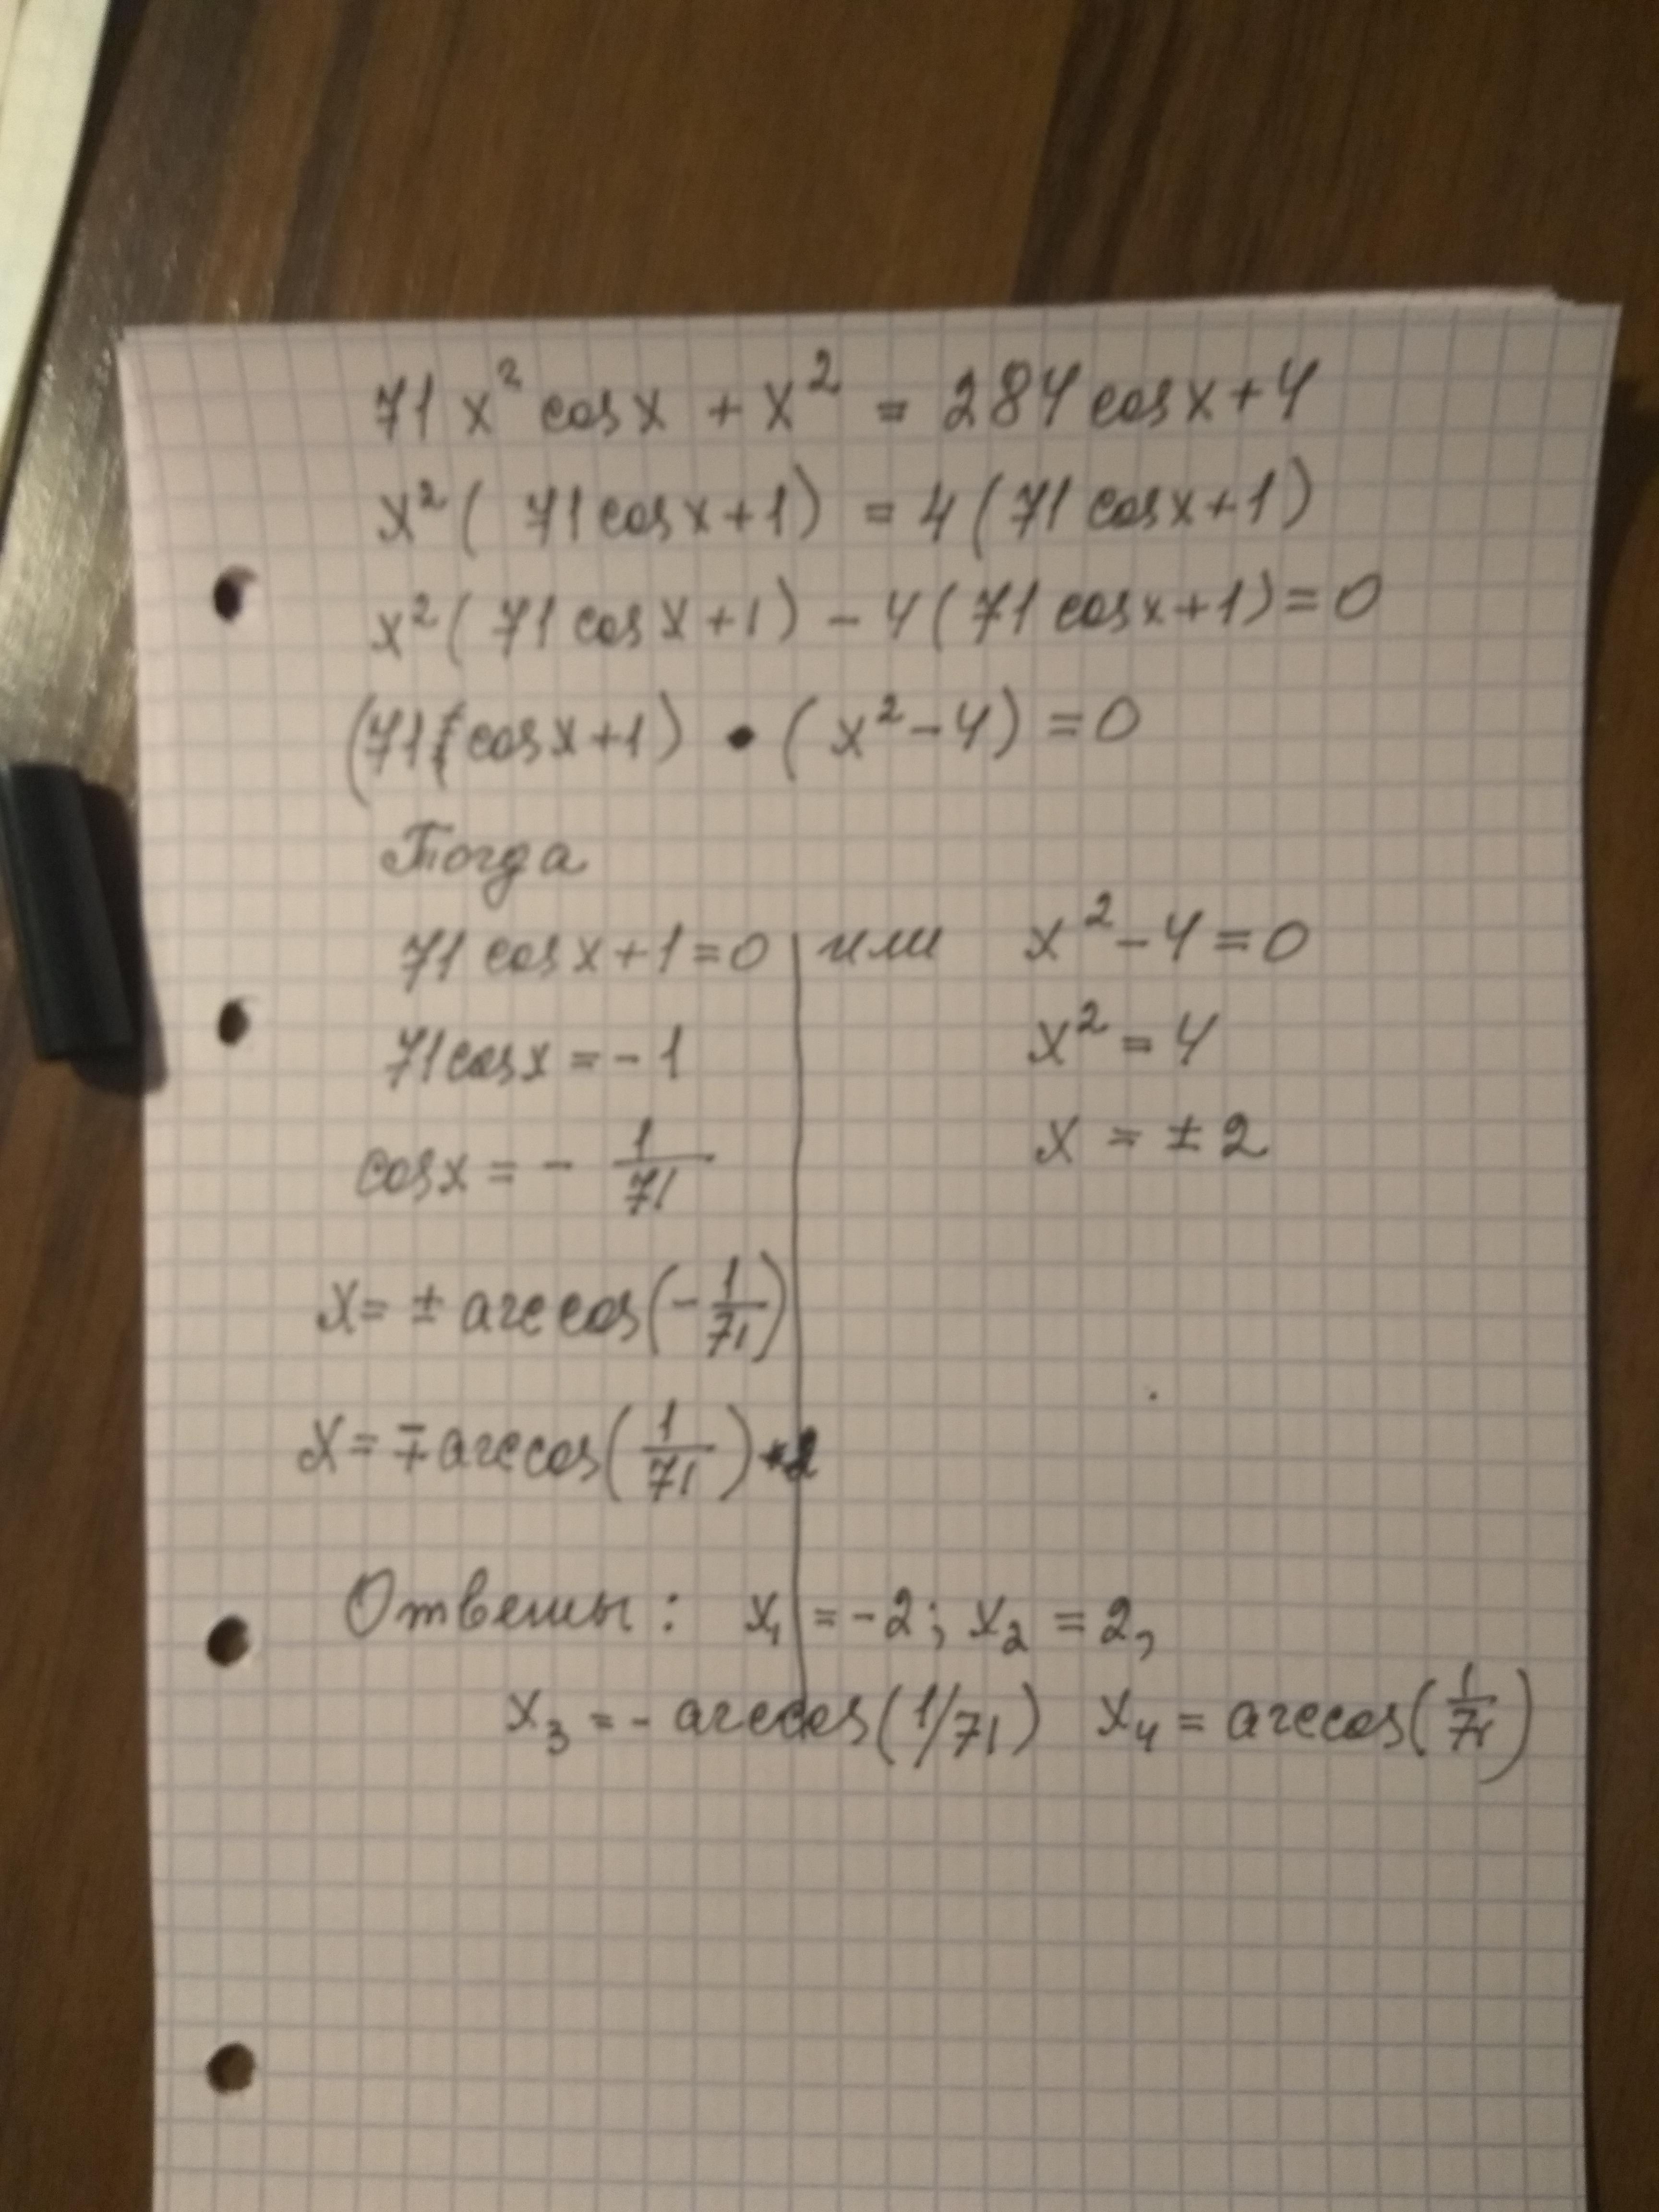 71 x² cosx + x² = 284 cosx + 4
x² ( 71 cosx + 1) = 4 (71 cosx + 1)
x² ( 71 cosx + 1) - 4 (71 cosx + 1) = 0
(71 cosx + 1) • ( x² - 4) = 0
Тогда
71 cosx + 1 = 0 | или x² - 4 = 0
71 cosx = - 1 x² = 4
cosx = - 1/71 x = ± 2
x = ± arccos(- 1/71)
x = ∓ arccos(1/71)
Ответы: x₁ = -2; x₂ = 2,
x₃ = - arccos(1/71) x₄ = arccos(1/71)